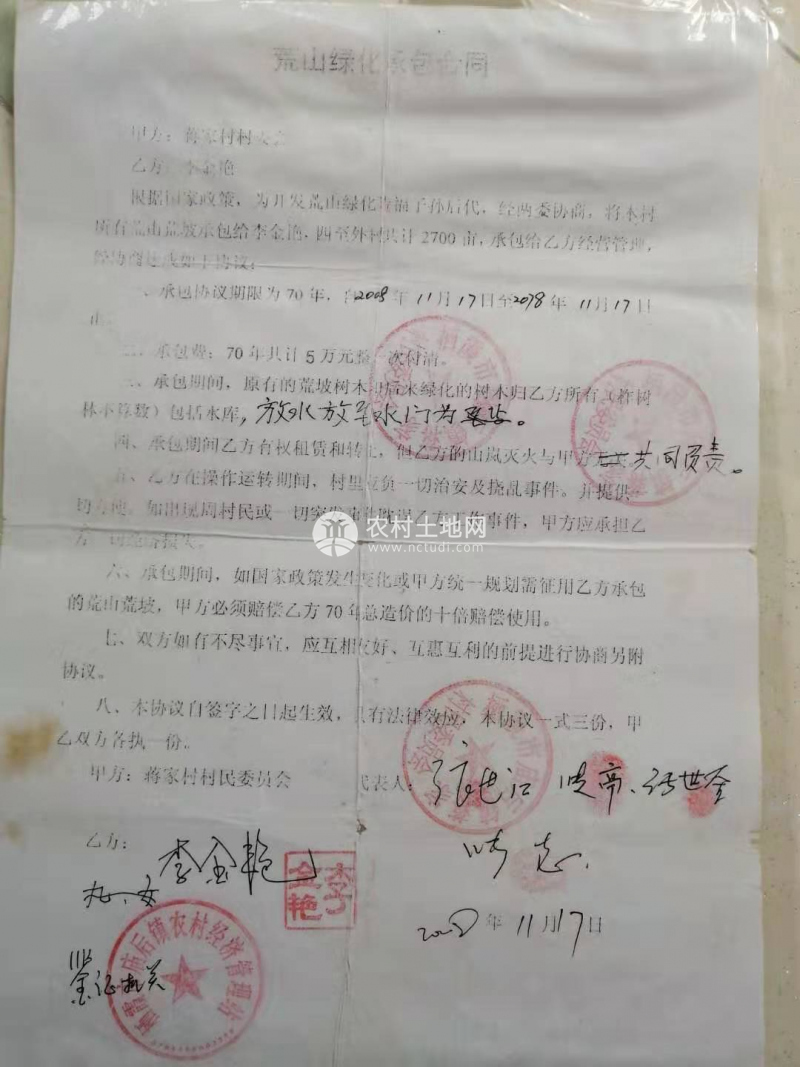 荒山绿化承包合同
甲方：蒋家村村委会
乙方：李金艳
根据国家政策，为开发荒山绿化造福子孙后代，经两委协商，将本村
所有荒山荒坡承包给李金艳，四至外村共计2700亩，承包给乙方经营管理，
经协商达成如下协议：
一、承包协议期限为70年，自2008年11月17日至2078年11月17日
止。
二、承包费：70年共计5万元整一次付清。
三、承包期间，原有的荒坡树木和后来绿化的树木归乙方所有（柞树
林不算数）包括水库，放水放
四、承包期间乙方有权租赁和转让，但乙方的山岚灭火与甲方共同负责。
五、乙方在操作运转期间，村里应负一切治安及挠乱事件。并提供一
切方便。如出现周村民或一切突发事件耽误乙方工作事件，甲方应承担乙
方一切经济损失。
农村土地网
www.nctudi.com
六、承包期间，如国家政策发生变化或甲方统一规划需征用乙方承包
的荒山荒坡，甲方必须赔偿乙方70年总造价的十倍赔偿使用。
七、双方如有不尽事宜，应互相友好、互惠互利的前提进行协商另附
协议。
八、本协议自签字之日起生效，具有法律效应，本协议一式三份，甲
乙双方各执一份。
甲方：蒋家村村民委员会 代表人：
乙方：李金艳
李金艳
2008年11月17日
鉴证机关
栖霞庙后镇农村经济管理站